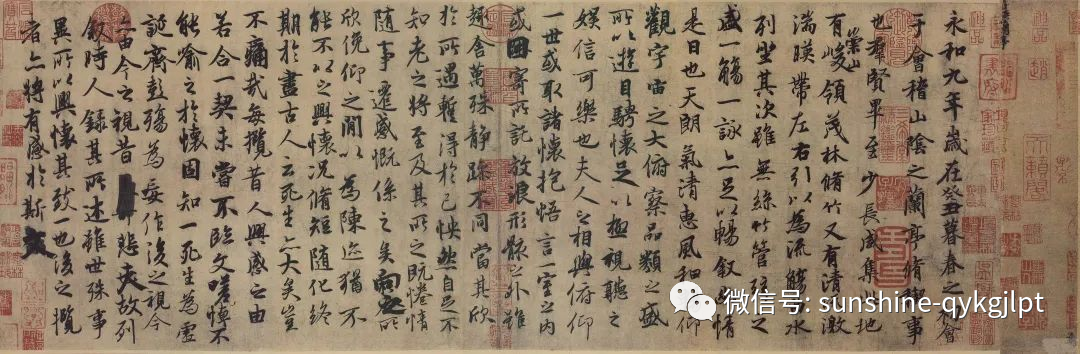 永和九年歲在癸丑暮春之初會
于會稽山陰之蘭亭脩禊事
也群賢畢至少長咸集此地
有崇山峻領茂林脩竹又有清流激
湍暎帶左右引以為流觴曲水
列坐其次雖無絲竹管弦之
盛一觴一詠亦足以暢敘幽情
是日也天朗氣清惠風和暢仰
觀宇宙之大俯察品類之盛
所以遊目騁懷足以極視聽之
娛信可樂也夫人之相與俯仰
一世或取諸懷抱悟言一室之內
或因寄所託放浪形骸之外雖
趣舍萬殊靜躁不同當其欣
於所遇暫得於己怏然自足不
知老之將至及其所之既惓情
隨事遷感慨係之矣向之所
欣俛仰之閒以為陳迹猶不
能不以之興懷況脩短隨化終
期於盡古人云死生亦大矣豈
不痛哉每攬昔人興感之由
若合一契未嘗不臨文嗟悼不
能喻之於懷固知一死生為虛
誕齊彭殤為妄作後之視今
亦由今之視昔悲夫故列
敘時人錄其所述雖世殊事
異所以興懷其致一也後之攬
者亦將有感於斯文
微信号: sunshine-qykgjlpt